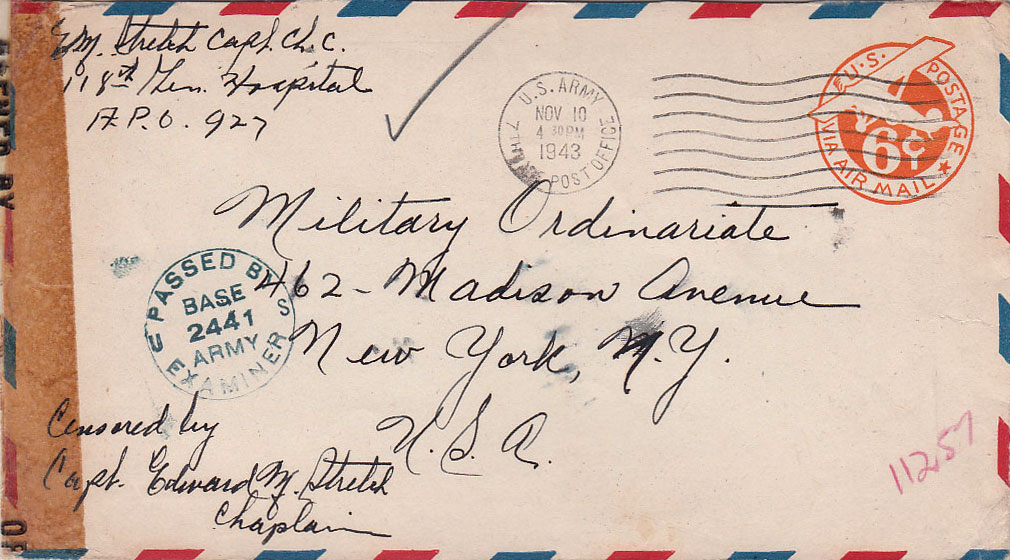 E.M. Stretch Capt. Ch. C.
118th Gen. Hospital
A.P.O. 927
U.S. ARMY
NOV 10
4 30 PM
1943
7TH
POST OFFICE
U.S. POSTAGE
6¢
VIA AIR MAIL
Military Ordinariate
462 - Madison Avenue
New York, N.Y.
U.S.A.
PASSED BY
BASE
2441
ARMY
EXAMINER
U S
Censored by
Capt. Edward M. Stretch
Chaplain
11257
BY